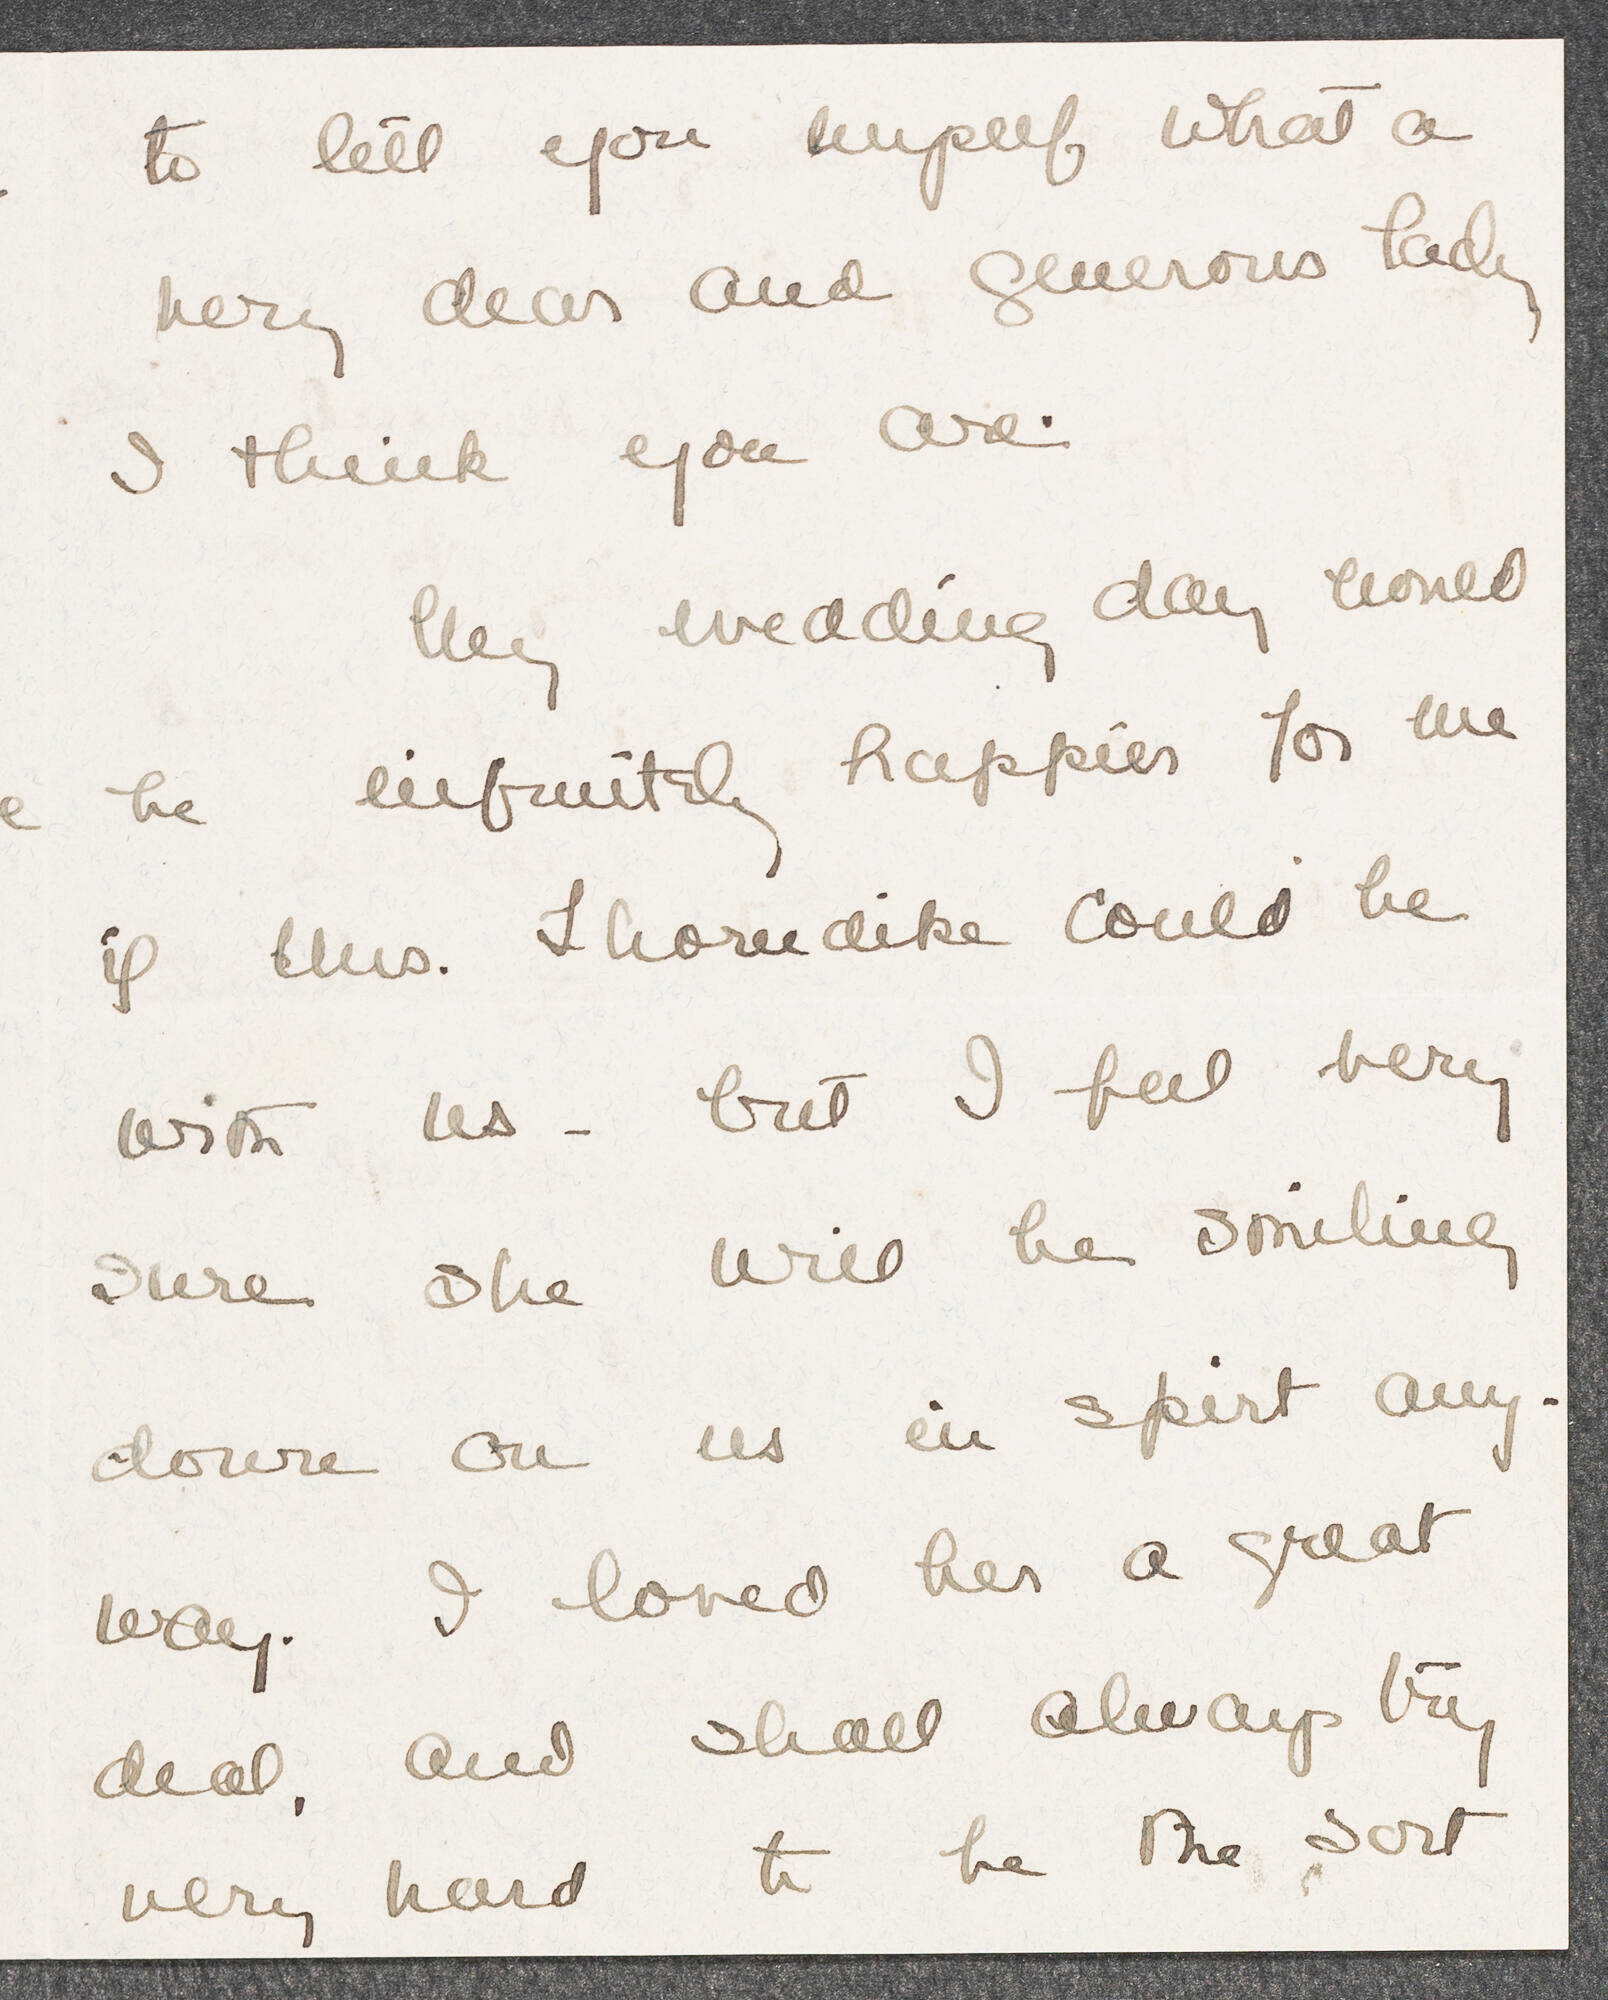 to tell you myself what a
very dear and generous lady
I think you are.
My wedding day would
be infinitely happier for me
if Mrs. Thorndike could be
with us - but I feel very
sure she will be smiling
down on us in spirt any-
way. I loved her a great
deal, and shall always try
very hard to be the sort